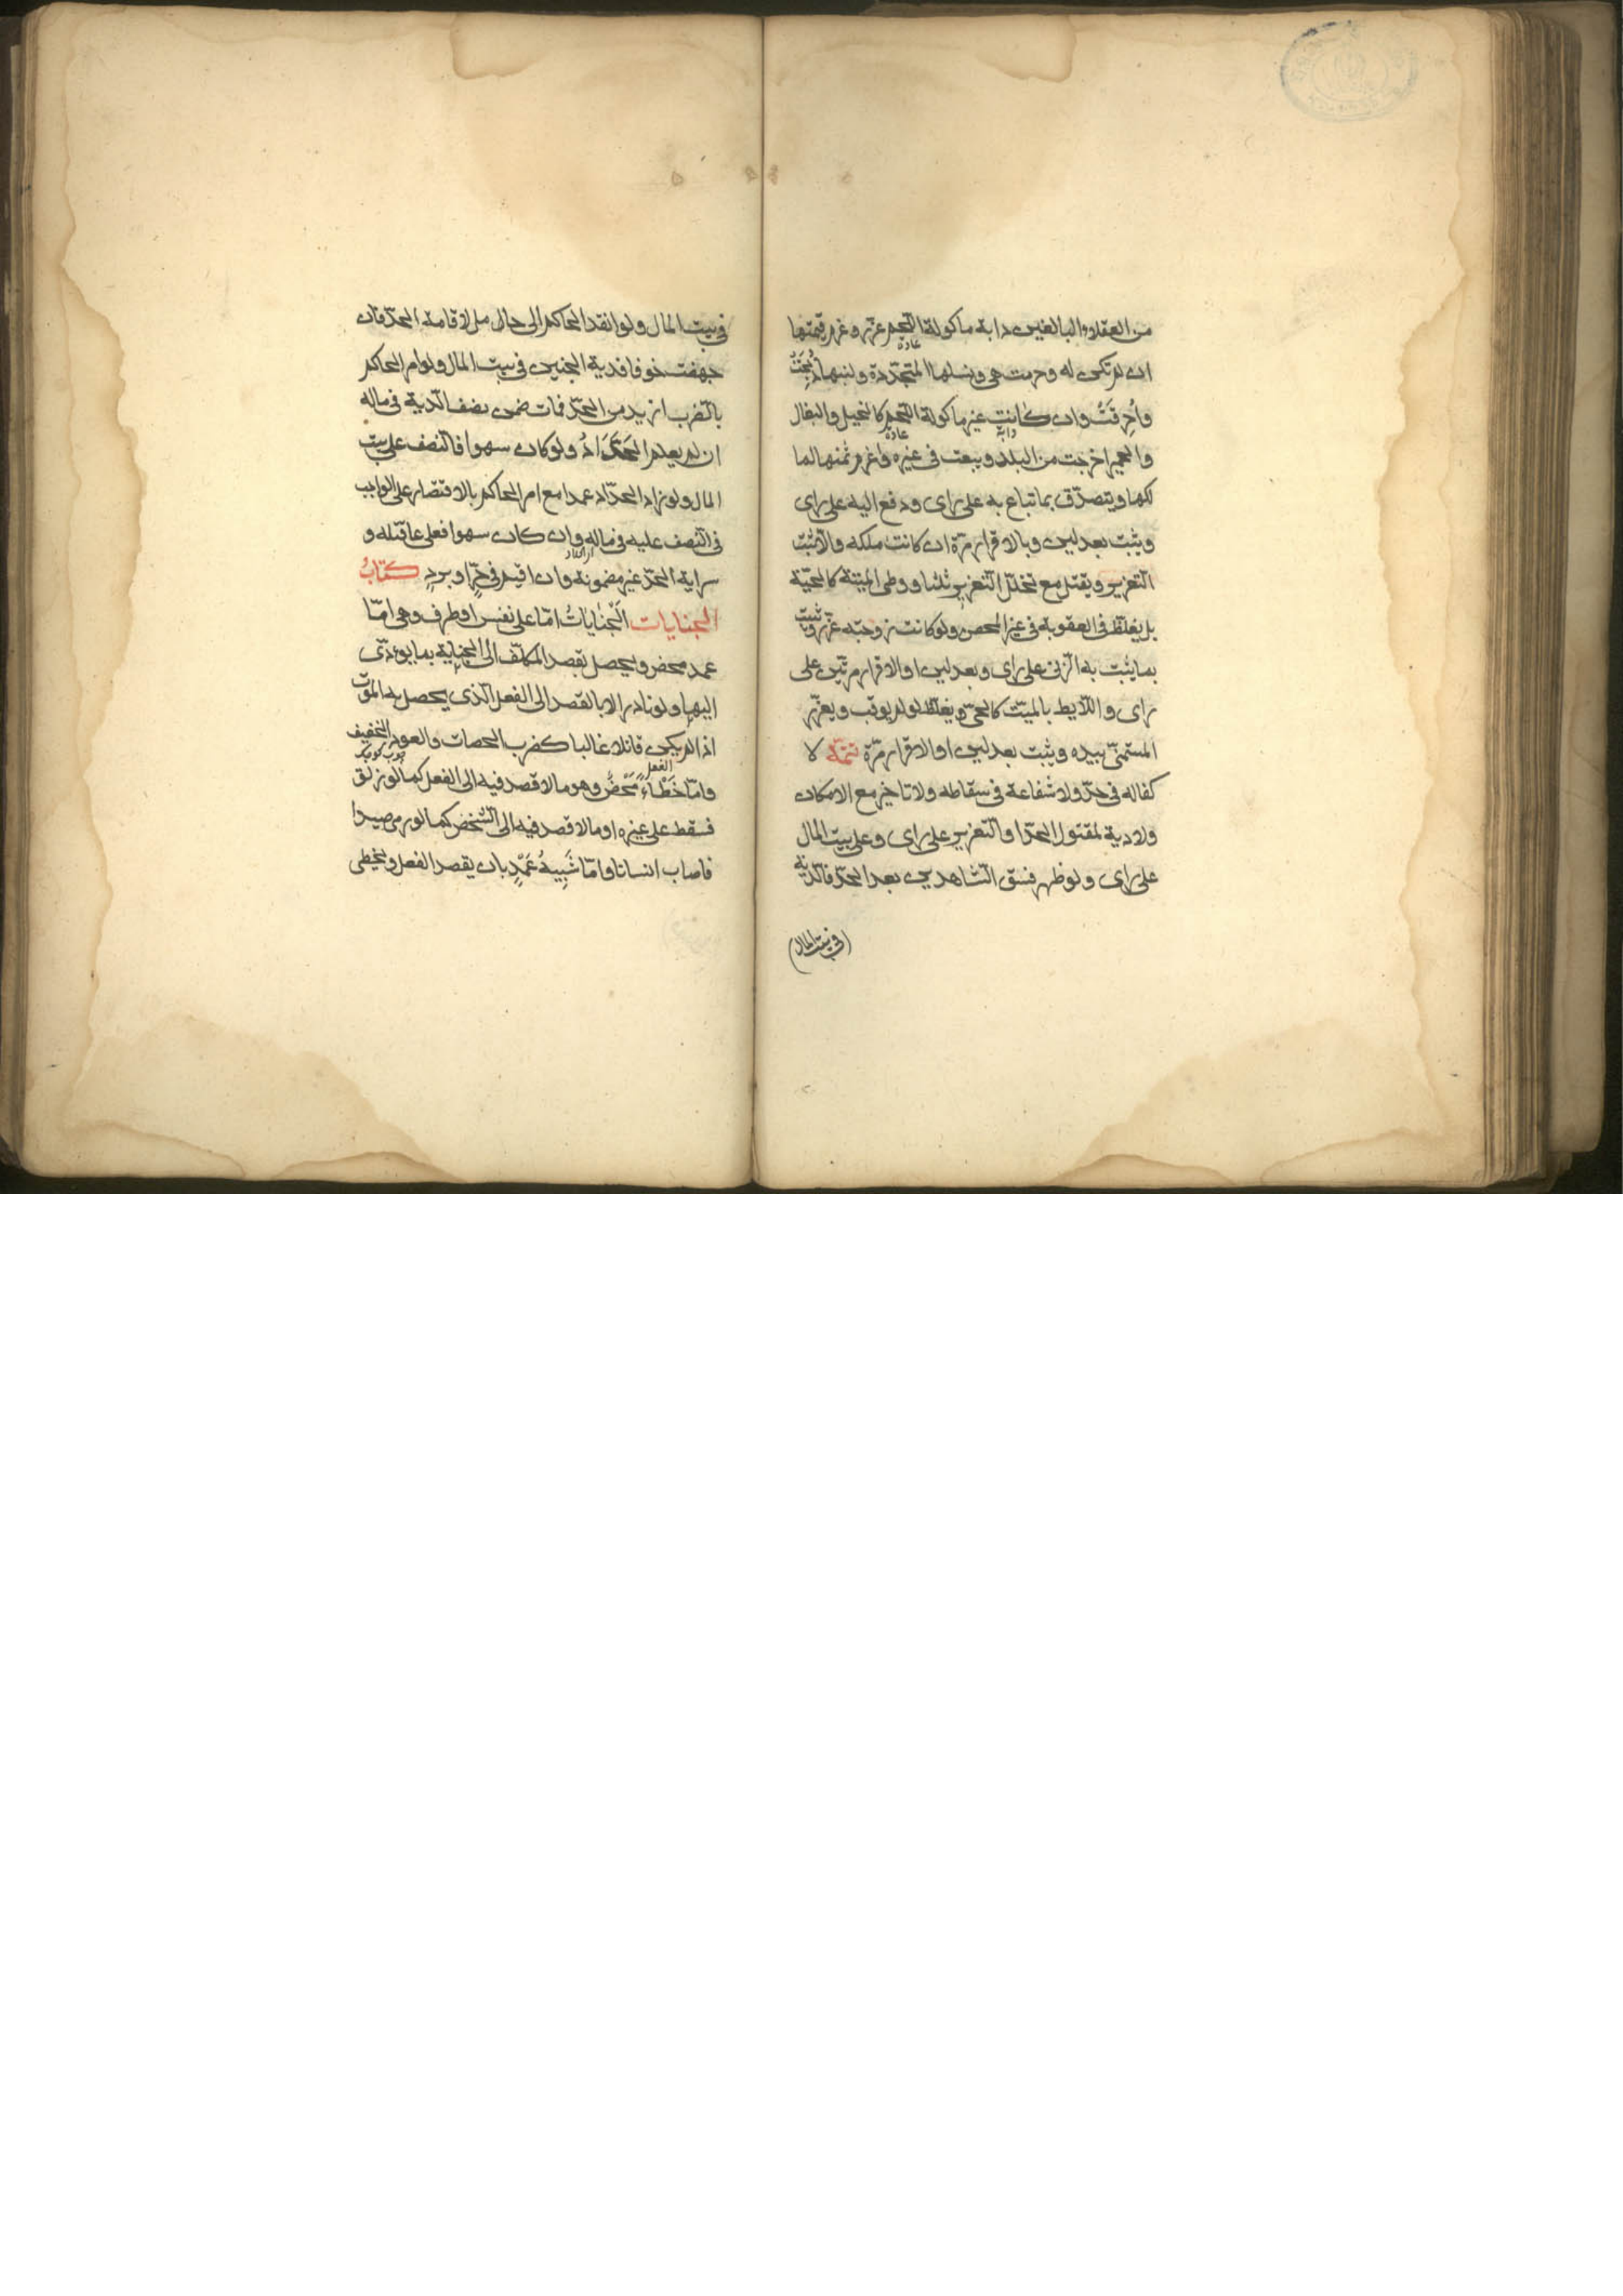 من العقلاء البالغين دابة ماكولة اللحم عزر وغرم قيمتها
عادة
ان لم تكن له وحرمت هي ونسلها المتجددة ولبنها وذبحت
وأُحرِقَتْ وان كانت غير ماكولة اللحم كالخيل والبغال
دابه عادة
والحمير اخرجت من البلد وبيعت في غيره واغرم ثمنها لما
لكها ويتصدّق بما تباع به على راى ودفع اليه على راى
ويثبت بعدلين وبالاقرار مرّة ان كانت ملكه والا ثبت
التعزير ويقتل مع تخلل التعزير ثلثا ووطى الميتة كالحيّة
بل يغلظ في العقوبة في غير المحصن ولو كانت زوجته عزر ويثبت
بما يثبت به الزنى على راى وبعدلين او الاقرار مرتين على
راى واللايط بالميّت كالحىّ ويغلظ لو لم يوقب ويعزّر
المستمنى بيده ويثبت بعدلين او الاقرار مرّة تتمّة لا
كفاله في حدّ ولا شفاعة في سقاطه ولا تاخير مع الامكان
ولا دية لمقتول الحدّ او التعزير على راى وعلى بيت المال
على راى ولو ظهر فسق الشاهدين بعد الحدّ فالدّية
(في بيت المال)
في بيت المال ولو انفذ الحاكم الى حامل لاقامة الحدّ فان
جهضت خوفا فدية الجنين في بيت المال ولو امر الحاكم
بالضرب ازيد من الحدّ فمات ضمن نصف الدّية في ماله
ان لم يعلم الحَدَّادُ ولو كان سهوا فالنصف على بيت
المال ولو زاد الحدّاد عمدا مع امر الحاكم بالاقتصار على الواجب
في النصف عليه في ماله وان كان سهوا فعلى عاقلته و
سراية الحدّ غير مضمونة وان اقيم في حرّ او بردٍ كتابُ
الجنايات اَلْجِنَايَاتُ امّا على نفس او طرف وهى امّا
عمد محض ويحصل بقصد المكلّف الى الجناية بما يؤدّى
اليها ولو نادرا لا بالقصد الى الفعل الّذى يحصل به الموت
اذا لم يكن قاتلا غالبا كضرب الحصات والعود الخفيف
الفعل
وامّا خَطَاءٌ مَحْضٌ وهو ما لا قصد فيه الى الفعل كما لو زلق
فسقط على غيره او ما لا قصد فيه الى الشخص كما لو رمى صيدا
فاصاب انسانا وامّا شَبِيهُ عَمْدٍ بان يقصد الفعل ويخطى